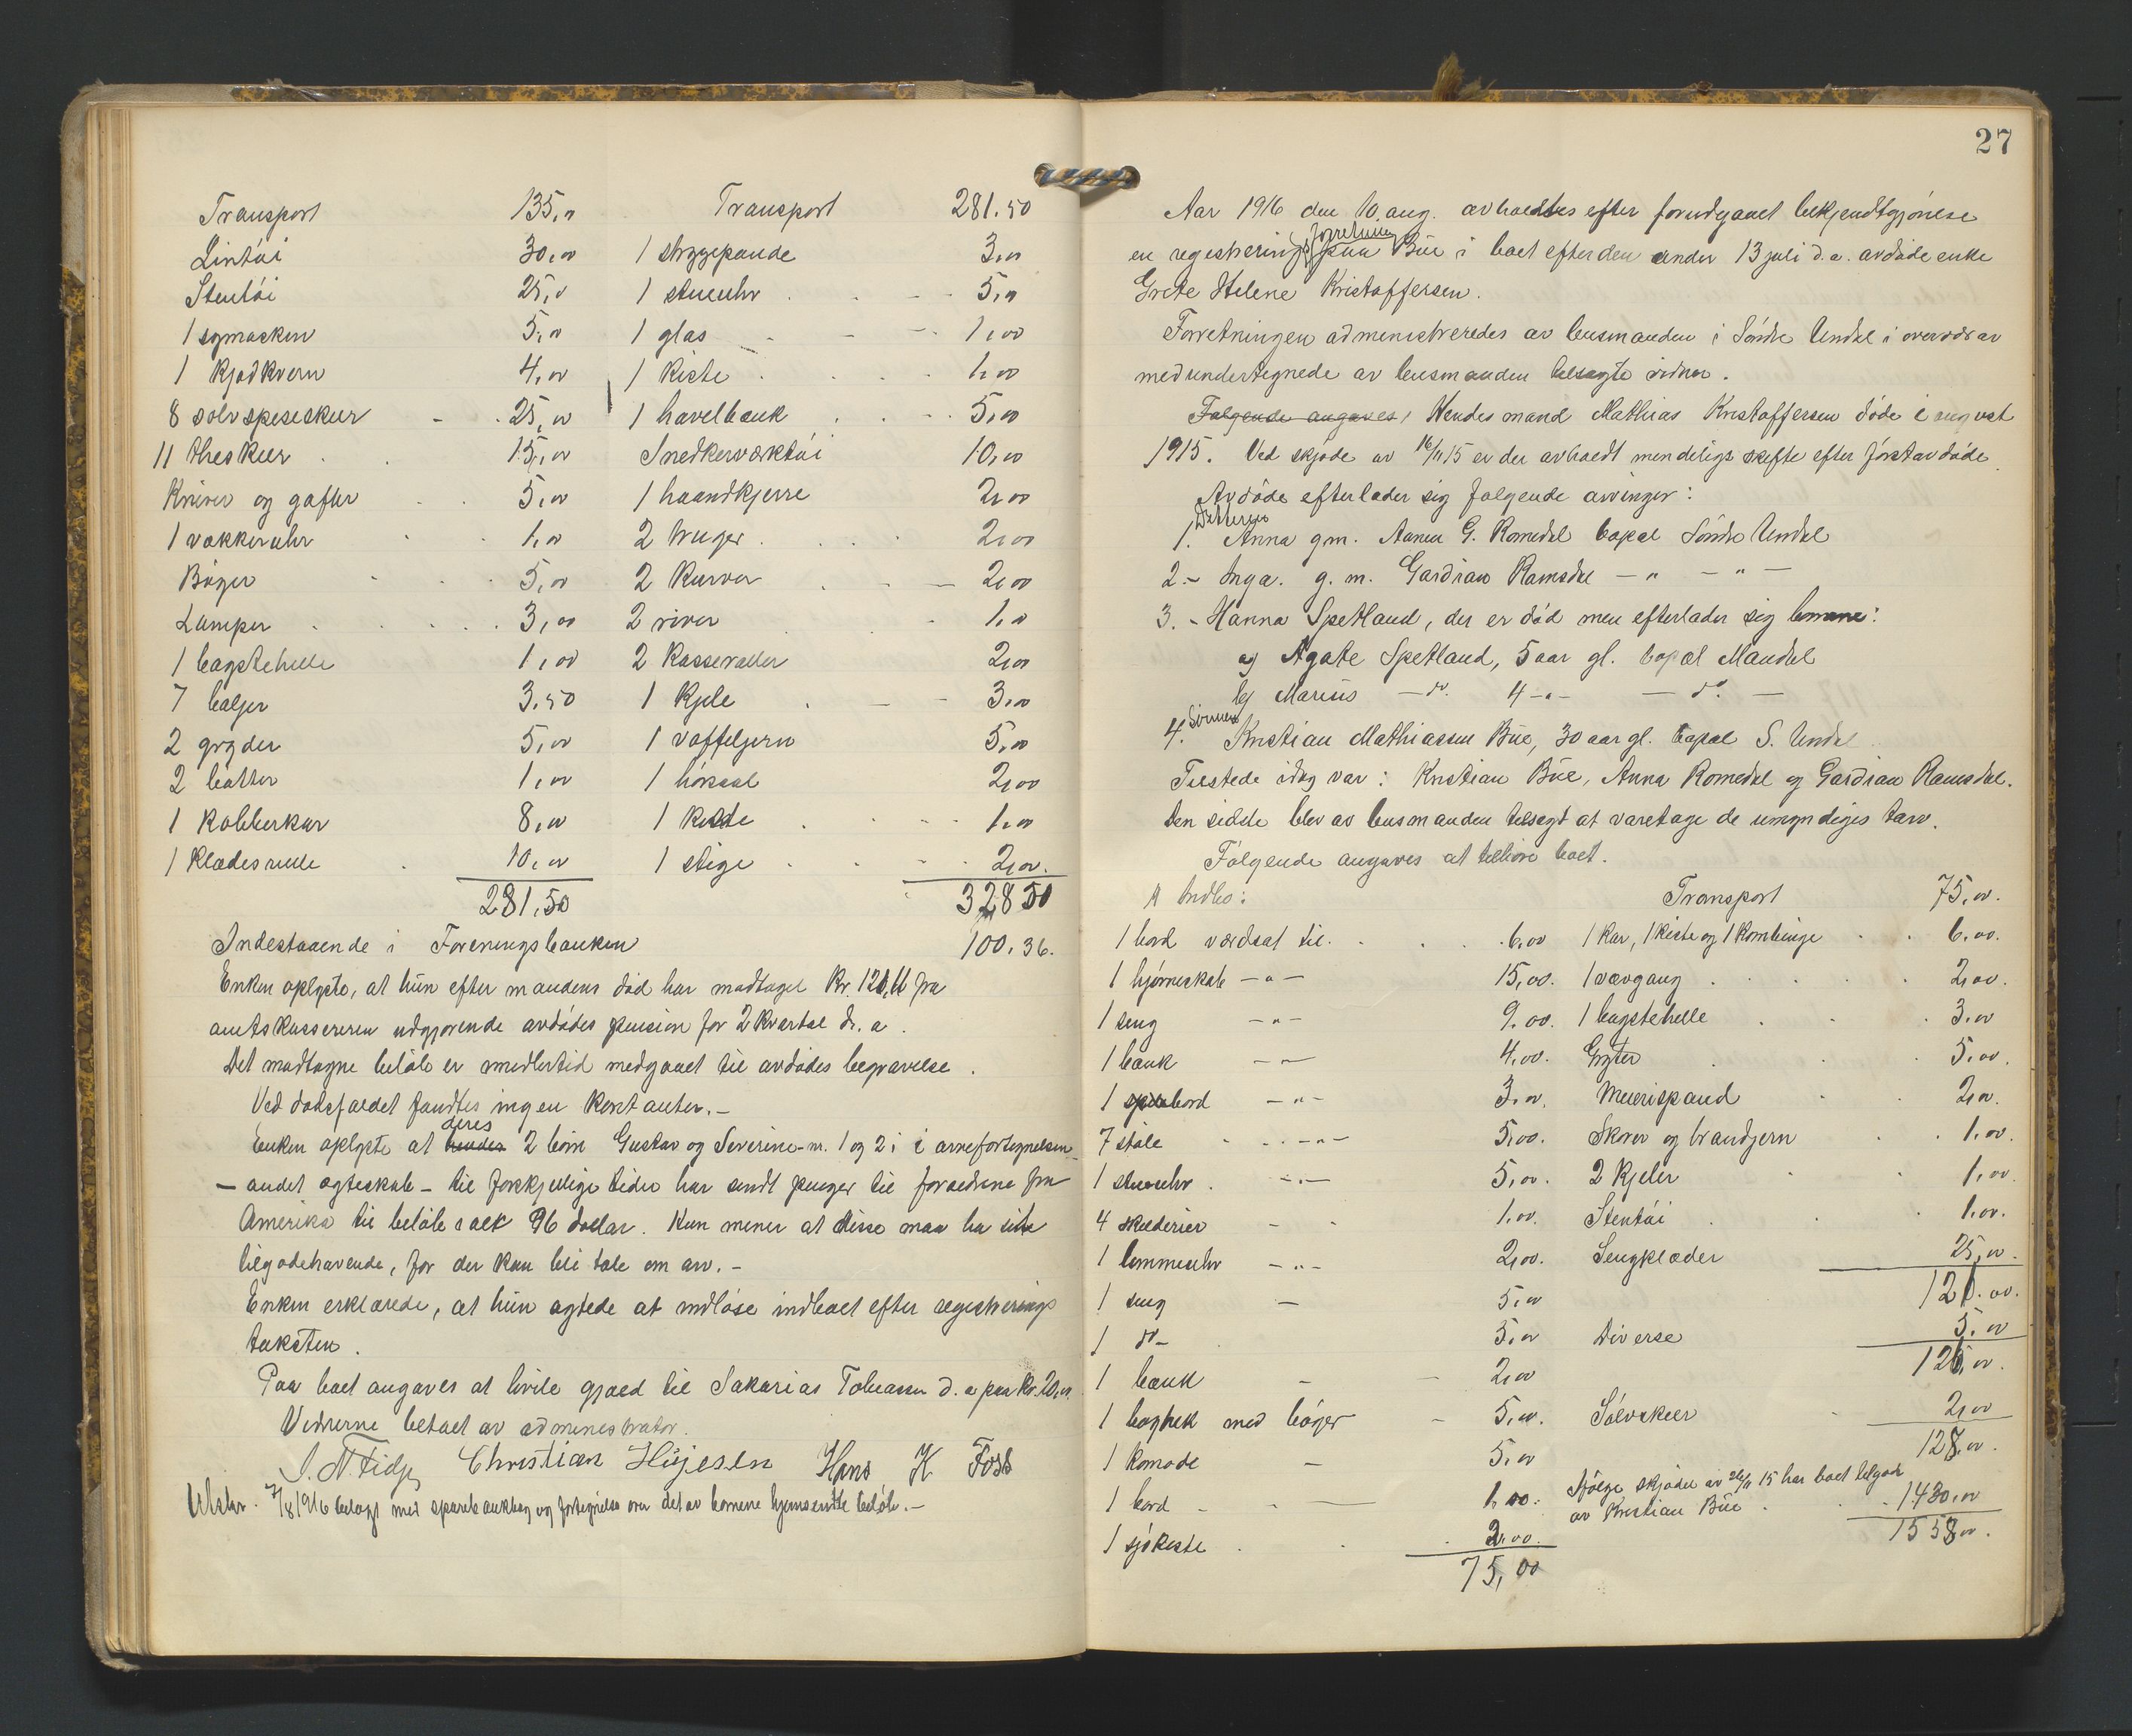 Transport 135,00 Transport 281.50
Lintöi 30,00 1 strygepande 3,00
Stentöi 25,00 1 stueuhr 5,00
1 symaskin 5,00 1 glas 1,00
1 Kjødkvern 4,00 1 Kiste 1,00
8 sølvspiseskeer 25,00 1 høvelbænk 5,00
11 theskeer 15,00 Snedkerværktöi 10,00
Kniver og gafler 5,00 1 haandkjerre 2,00
1 vækkeruhr 1,00 2 truger 2,00
Böger 5,00 2 Kurver 2,00
Lamper 3,00 2 river 1,00
1 bagstehelle 1,00 2 Kasseroller 2,00
7 baljer 3,50 1 Kjele 3,00
2 gryder 5,00 1 vaffeljern 5,00
2 bötter 1,00 1 2,00
1 Kobberkar 8,00 1 Kiste 1,00
1 Klædesrulle 10,00 1 stige 2,00.
281,50 328 50
Indestaaende i Foreningsbanken 100.36.
Enken oplyste, at hun efter mandens död har modtaget Kr. 121,11 fra
amtskassereren udgjørende avdödes pension for 2 Kvartal d. a.
Det modtagne belöb er imidlertid medgaaet til avdödes begravelse.
Ved dødsfaldet fandtes ingen Kontanter.-
deres
Enken oplyste at hendes 2 börn Gustav og Severine - nr. 1 og 2 i i arvefortegnelsen
- andet ægteskab - til forskjellige tider har sendt penger til forældrene fra
Amerika til beløb i alt 96 dollar. Hun mener at disse maa ha sitt
tilgodehavende, för der kan bli tale om arv. -
Enken erklærede, at hun agtede at indløse indboet efter registrerings
taksten.
Paa boet angaves at hvile gjæld til Sakarias Tobiassen d. e. paa Kr. 20,00.
Vidnerne betalt av administrator.
Christian Hüjesen Hans K Foss
Utskr. 7/8 1916 belagt med sparebankbog og fortegnelse over det av børnene hjemsendte beløb.-
27
Aar 1916 den 10. aug. avholdtes efter forudgaaet bekjendtgjörelse
forretning
en registrerings paa Büe i boet efter den under 13 juli d. a. avdöde enke
Grete Helene Kristoffersen.
Forretningen administreredes av lensmanden i Söndre Undal i overvær av
medundertegnede av lensmanden tilsagte vidner.
Følgende angaves, Hendes mand Mathias Kristoffersen döde i august
1915. Ved skjöde av 16/11 15 er der avholdt mindelige skifte efter först avdöde.
Avdöde efterlader sig følgende arvinger:
Datteren
1. Anna gm. Aanen G. Romedal bopæl Söndre Undal
2 - Inga. g. m. Gardian Ramsdal - " - " -
3. - Hanna Spetland, der er död men efterlader sig börnene:
a) Agate Spetland, 5 aar gl. bopæl Mandal
b) Marius - do. 4 - " - - do. -
Sönnen
4. Kristian Mathiassen Büe, 30 aar gl. bopæl S. Undal
Tilstede idag var: Kristian Büe, Anna Romedal og Gardian Ramsdal.
Den sidste blev av lensmanden tilsagt at varetage de umyndiges tarv.
Følgende angaves at tilhöre boet.
A Indbo: Transport 75,00.
1 bord værdsat til. 6,00 1 Kar, 1 Kiste og 1 Kornbinge 6,00.
1 hjørneskab - " - 15,00. 1 vævgang 2,00.
1 seng - " - 9,00. 1 bagstehelle 3,00
1 bænk - " - 4,00. Gryter 5,00.
1 spisebord - " - 3,00. Meierispand 2,00.
7 stole - " - 5,00. Skorer og brandjern 1,00.
1 stueuhr - " - 5,00. 2 Kjeler 1,00.
4 skilderier - 1,00. Stentöi 1,00.
1 lommeuhr - " - 2,00. Sengklæder 25,00.
1 seng - 5,00 121.00.
1 do - 5,00 Diverse 5,00
1 bænk - 2,00 126,00.
1 boghek med böger - 5,00. Sölvskeer 2,00
1 Komode - 5,00 128,00.
1 bord - 1,00. Ifølge skjöde av 26/11 15 har boet tilgode
av Kristian Büe 1430,00
1 sjökiste 2,00. 1558,00.
75,00